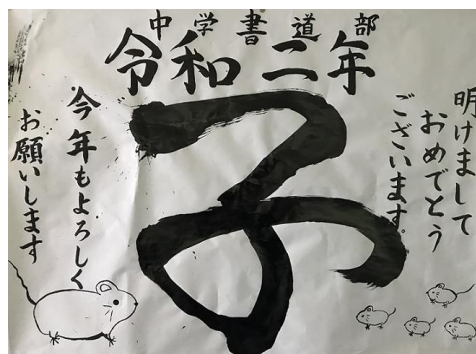 中学書道部
令和二年
明けまして
おめでとう
ございます。
子
今年もよろしく
お願いします